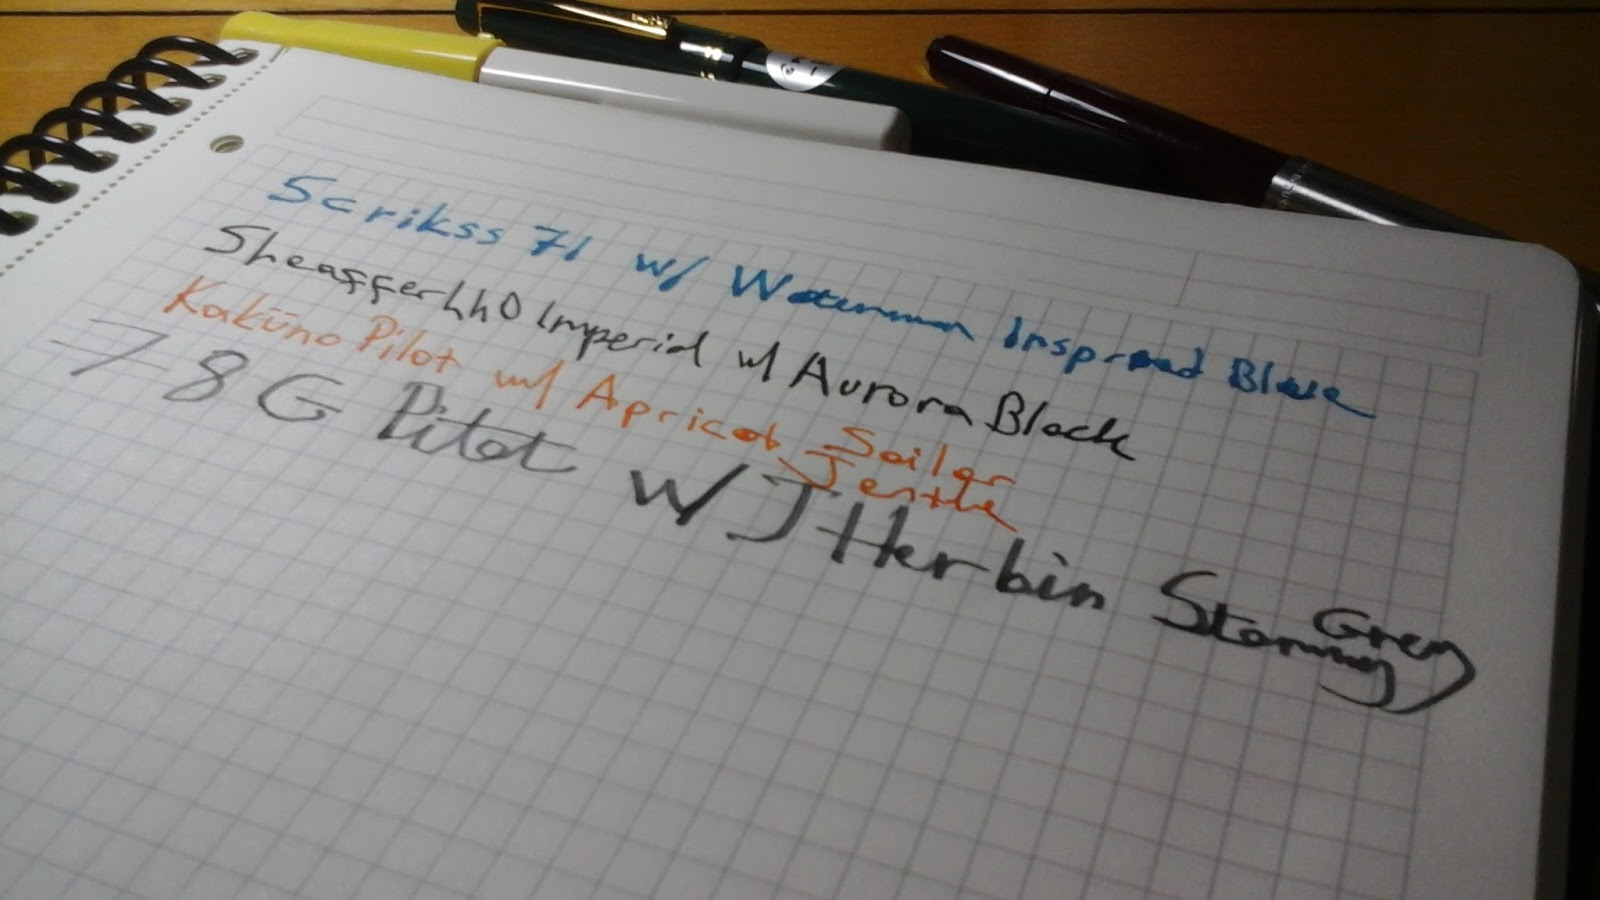 Scrikss 71 w/ Waterman Inspired Blue
Sheaffer 440 Imperial w/ Aurora Black
Kakūno Pilot w/ Apricot Sailor
Jentle
78G Pilot w/ J Herbin Stormy
Grey